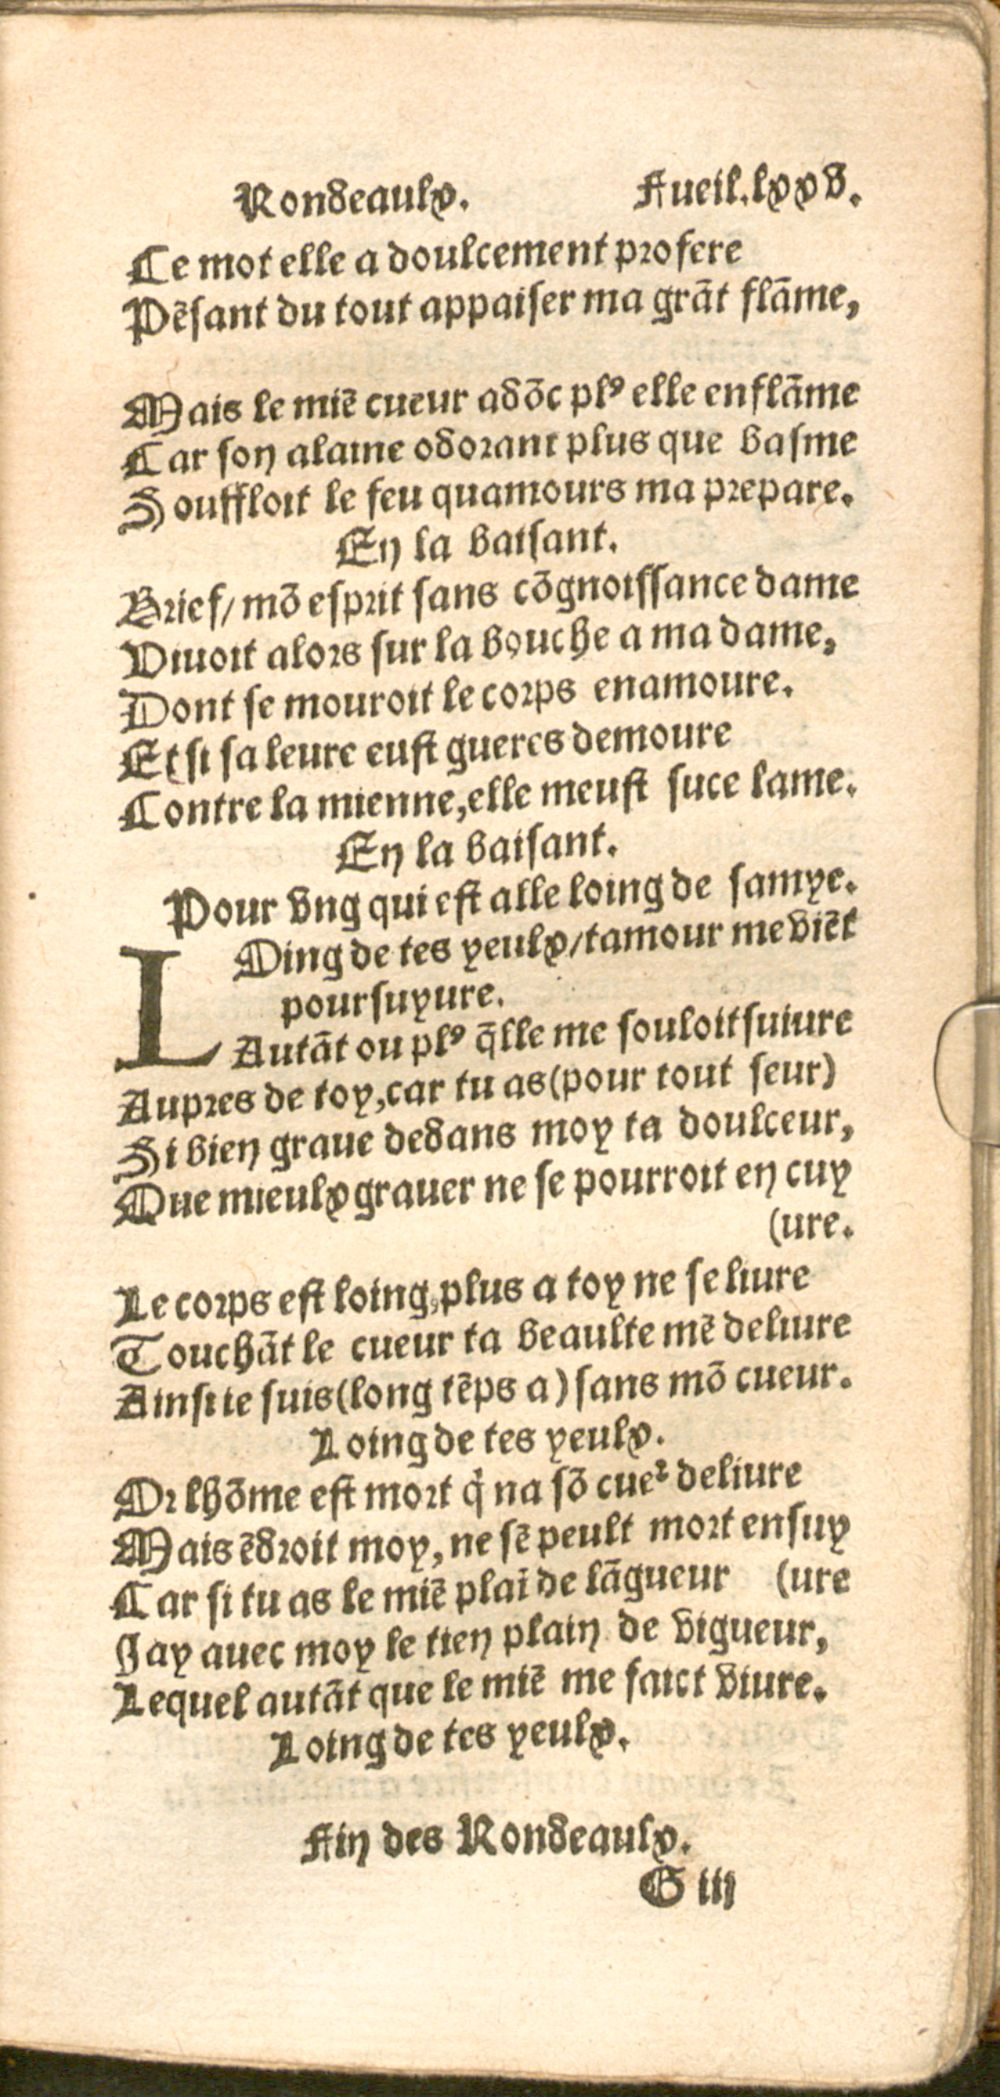 Rondeaulx. Fueil.lxxv.
Ce mot elle a doulcement profere
Pēsant du tout appaiser ma grāt flāme,
Mais le miē cueur adōc plꝰ elle enflāme
Car son alaine odorant plus que basme
Souffloit le feu quamours ma prepare.
En la baisant.
Brief/ mō esprit sans cōgnoissance dame
Viuoit alors sur la bouche a ma dame,
Dont se mouroit le corps enamoure.
Et si sa leure eust gueres demoure
Contre la mienne,elle meust suce lame.
En la baisant.
Pour vng qui est alle loing de samye.
LOing de tes yeulx/tamour me viēt
poursuyure.
Autāt ou plꝰ q̄lle me souloit suiure
Aupres de toy,car tu as(pour tout seur)
Si bien graue dedans moy ta doulceur,
Que mieulx grauer ne se pourroit en cuy
(ure.
Le corps est loing,plus a toy ne se liure
Touchāt le cueur ta beaulte mē deliure
Ainsi ie suis(long tēps a) sans mō cueur.
Loing de tes yeulx.
Or lhōme est mort q̇ na sō cueꝛ deliure
Mais ēdroit moy, ne sē peult mort ensuy
Car si tu as le miē plaī de lāgueur (ure
Jay auec moy le tien plain de vigueur,
Lequel autāt que le miē me faict viure.
Loing de tes yeulx.
Fin des Rondeaulx.
G iii